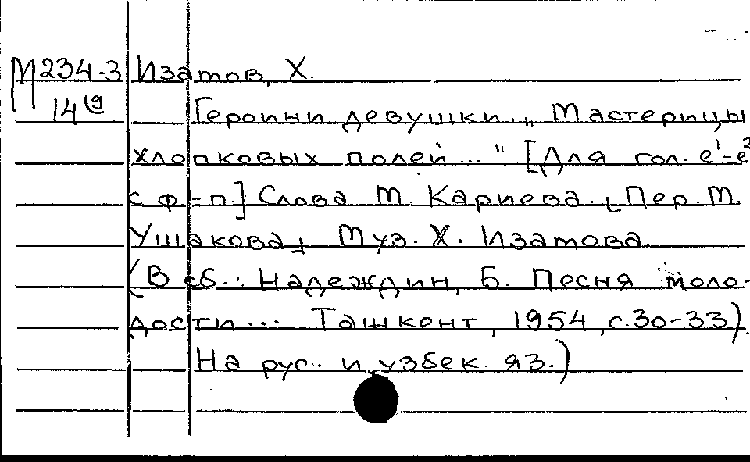 М234-3 Изатов, Х.
14(9 Героини девушки. „ Мастерицы
хлопковых полей..." [Для гол. е¹-е²
с ф-п.] Слова М. Кариева. [Пер. М.
Ушакова] Муз. Х. Изатова
(В сб.: Надеждин, Б. Песня моло-
дости... Ташкент, 1954, с.30-33)
На рус. и узбек. яз.)